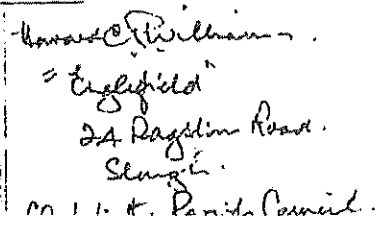 Howard C. Williams.
"Englefield"
2A Ragstone Road.
Slough.
Parish Council.